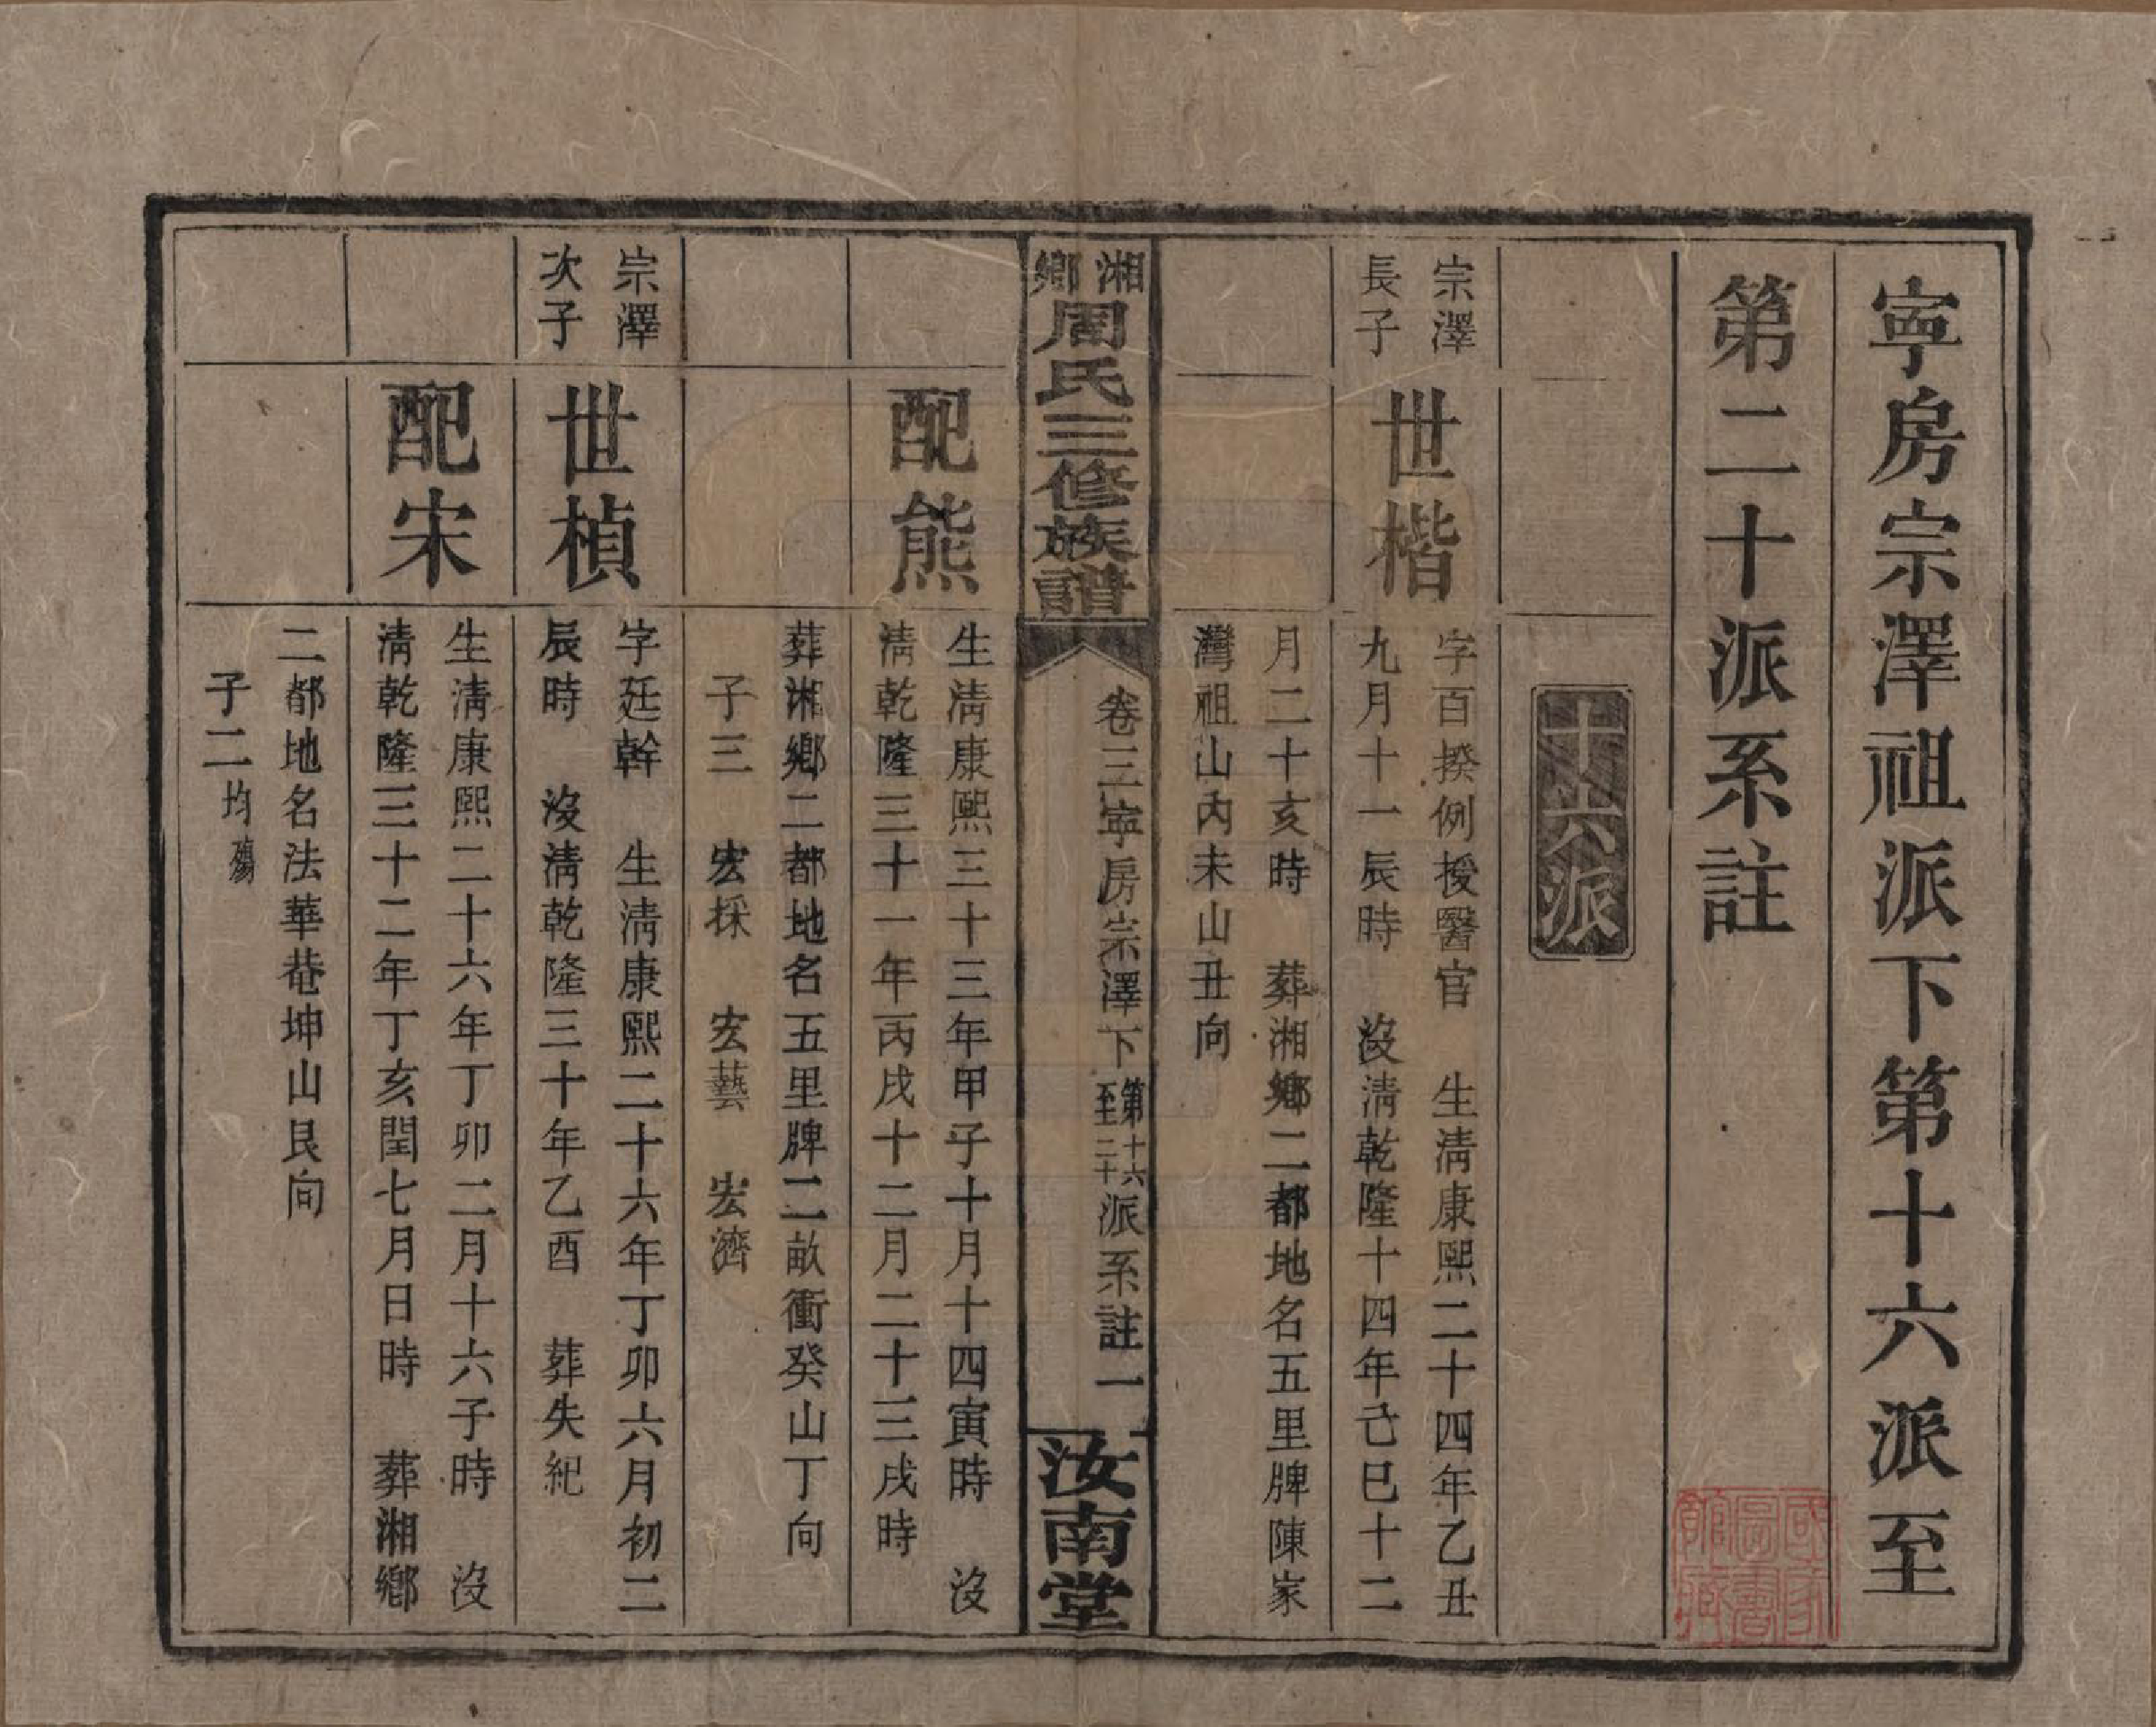 寧房宗澤祖派下第十六派至
第二十派系註
十六派
宗澤
長子
世楷
字百揆例授醫官　生淸康熙二十四年乙丑
九月十一辰時　沒淸乾隆十四年己巳十二
月二十亥時　葬湘鄉二都地名五里牌陳家
灣祖山內未山丑向
湘鄉周氏三修族譜
卷三寧房宗澤下第十六至二十派系註一
汝南堂
配熊
生淸康熙三十三年甲子十月十四寅時　沒
淸乾隆三十一年丙戌十二月二十三戌時
葬湘鄉二都地名五里牌二畝衝癸山丁向
子三　宏採　宏藝　宏濟
宗澤
次子
世楨
字廷幹　生淸康熙二十六年丁卯六月初二
辰時　沒淸乾隆三十年乙酉　葬失紀
配宋
生淸康熙二十六年丁卯二月十六子時　沒
淸乾隆三十二年丁亥閏七月日時　葬湘鄉
二都地名法華菴坤山艮向
子二均殤
國家圖書館藏